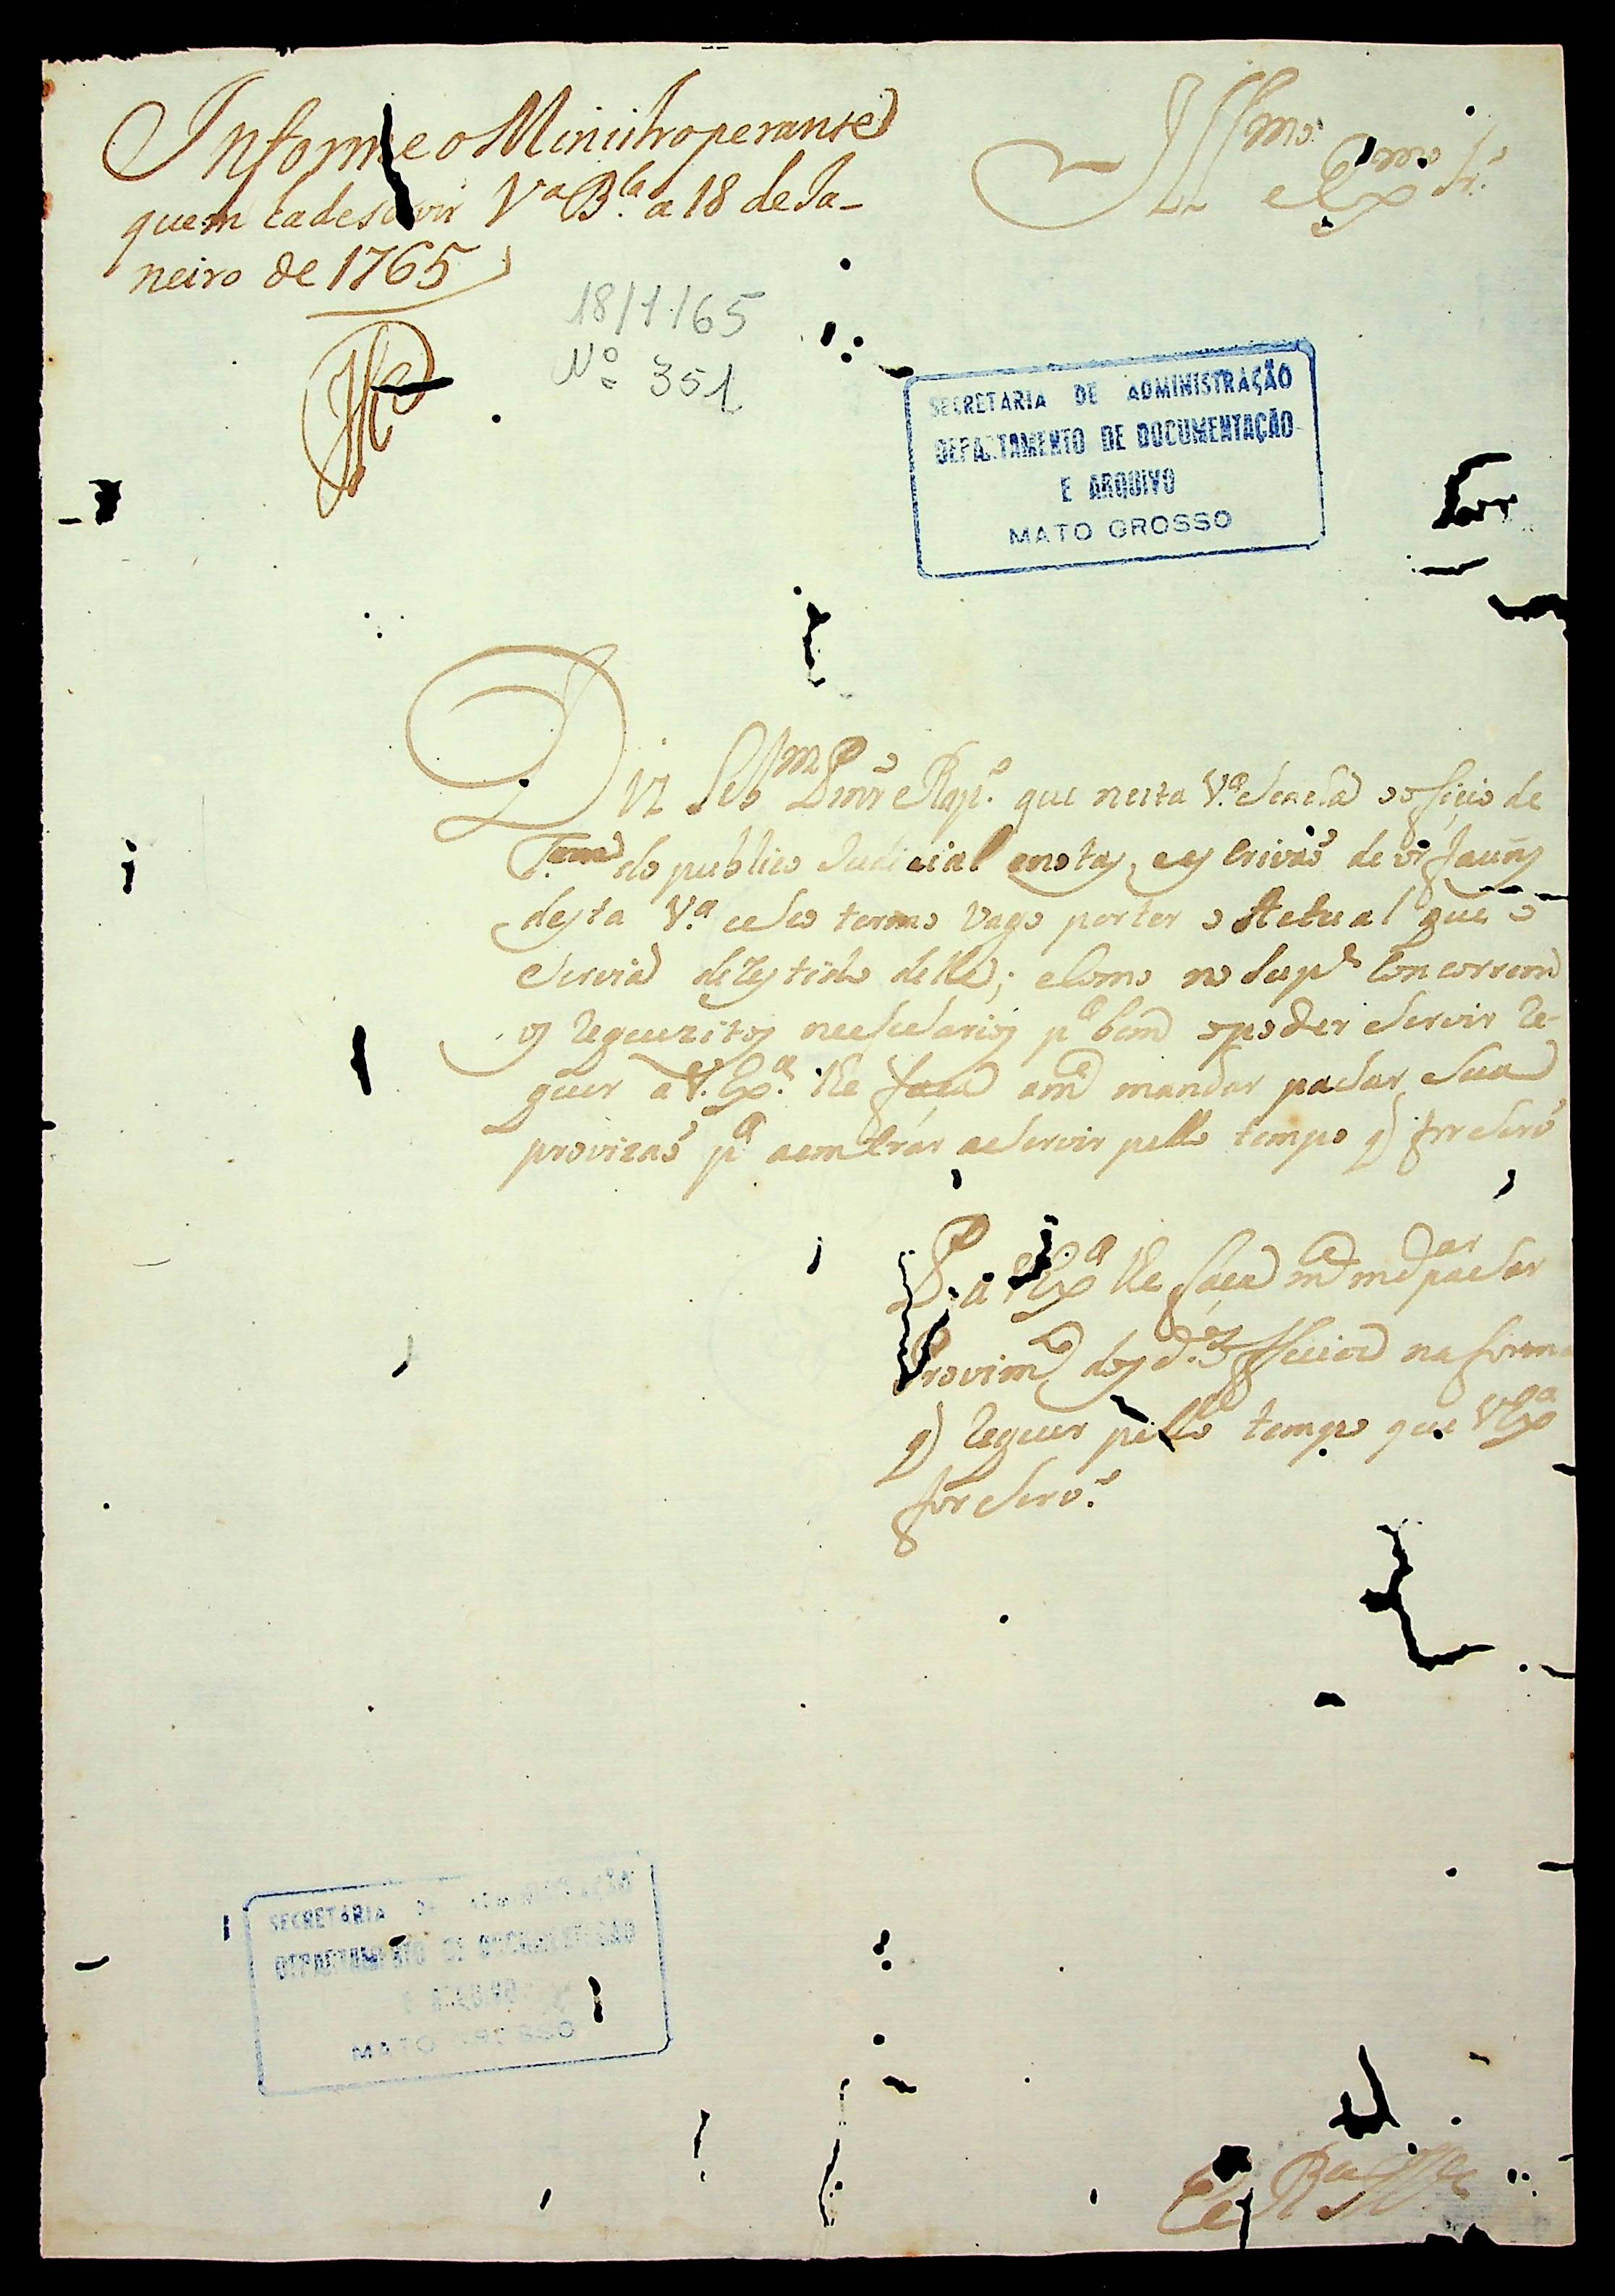 Informe o Ministro perante
quem ha de servir V.ª B.la a 18 de Ja-
neiro de 1765
Ill.mo e Ex.mo Sr.
18/1/65
Nº 351
SECRETARIA DE ADMINISTRAÇÃO
DEPARTAMENTO DE DOCUMENTAÇÃO
E ARQUIVO
MATO GROSSO
Diz que nesta V.ª se acha o officio de
do publico Judicial e notas, e escrivaõ de orfaons
desta V.ª e seo termo vago por ter o Actual que o
servia dezestido delle; e Como no Sup.e Concorrem
os requezitos necessarios p.ª bem o poder servir re-
quer a V. Ex.ª lhe faça a m.e mandar passar sua
provizaõ p.ª a servir pello tempo q for serv.o
P. a V Ex.ª lhe faça m.e m.dar passar
Provim.to dos d.os officios na forma
q requer pello tempo que V Ex.ª
for serv.o
E R M.ce
SECRETARIA DE ADMINISTRAÇÃO
DEPARTAMENTO DE DOCUMENTAÇÃO
E ARQUIVO
MATO GROSSO